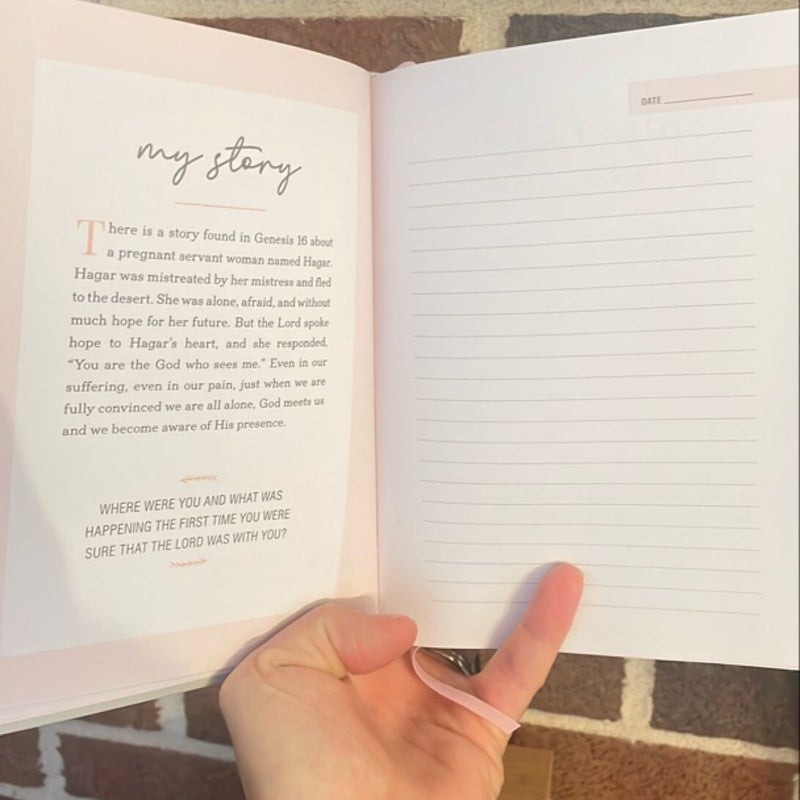 my story
There is a story found in Genesis 16 about
a pregnant servant woman named Hagar.
Hagar was mistreated by her mistress and fled
to the desert. She was alone, afraid, and without
much hope for her future. But the Lord spoke
hope to Hagar's heart, and she responded,
"You are the God who sees me." Even in our
suffering, even in our pain, just when we are
fully convinced we are all alone, God meets us
and we become aware of His presence.
WHERE WERE YOU AND WHAT WAS
HAPPENING THE FIRST TIME YOU WERE
SURE THAT THE LORD WAS WITH YOU?
DATE